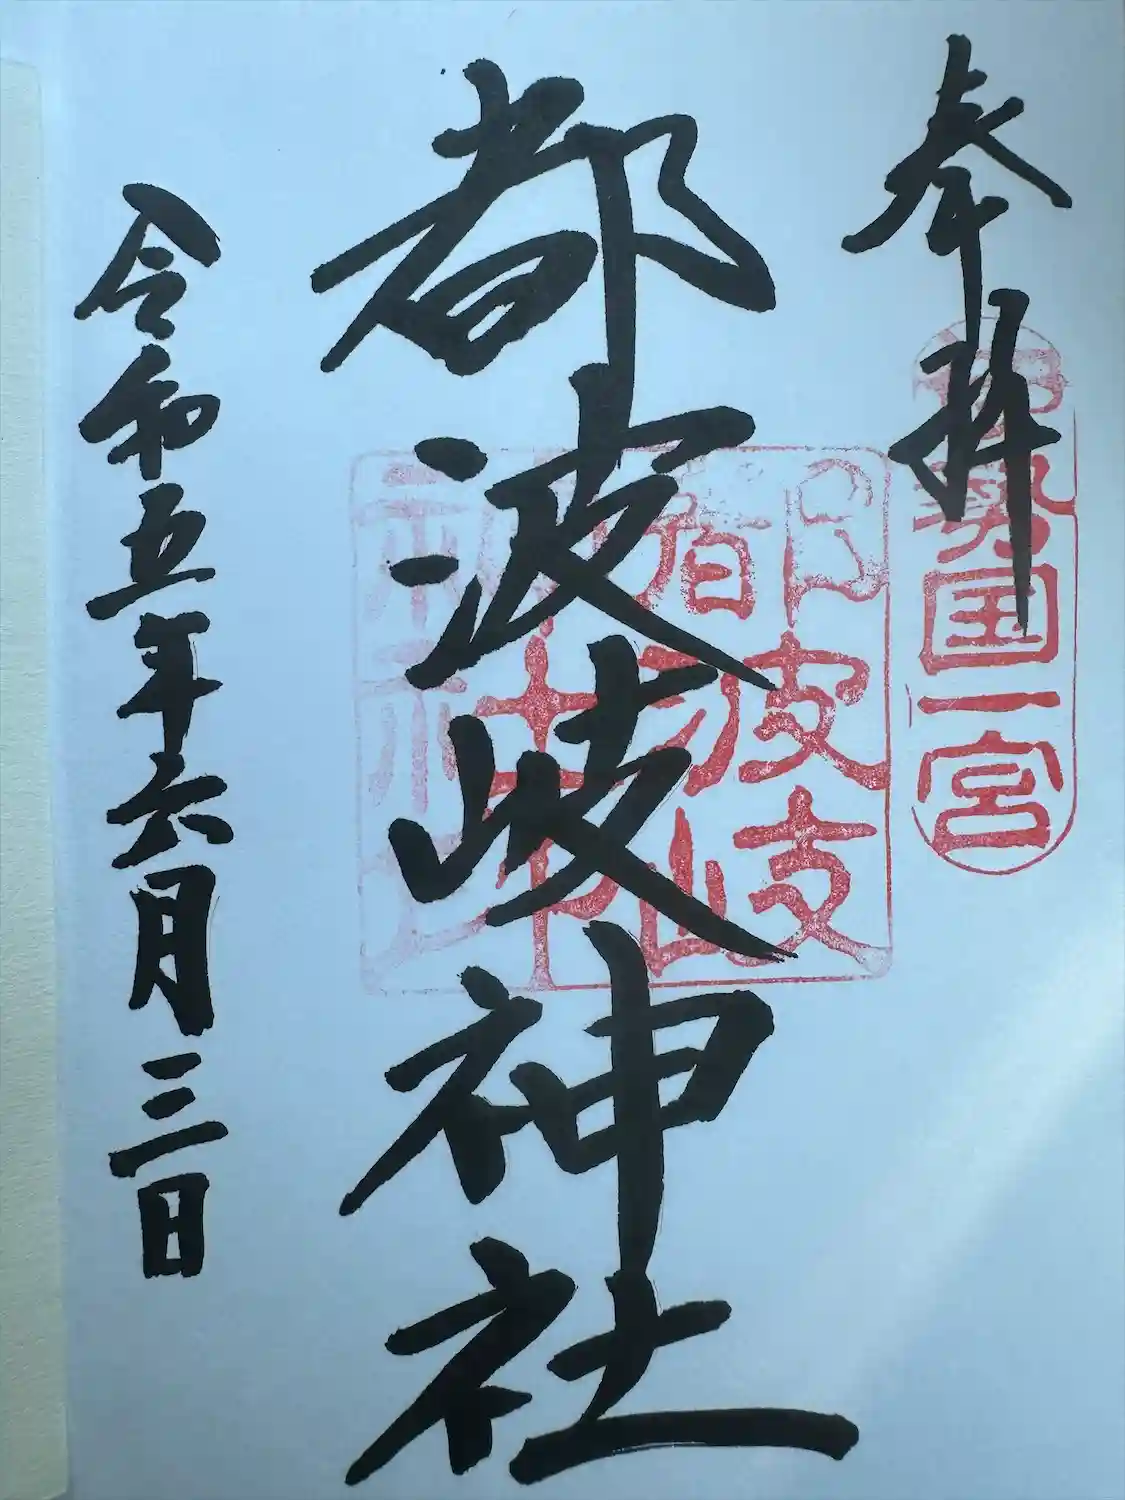 奉拝
伊勢国一宮
都波岐神社
都波岐
神社
令和五年六月三日